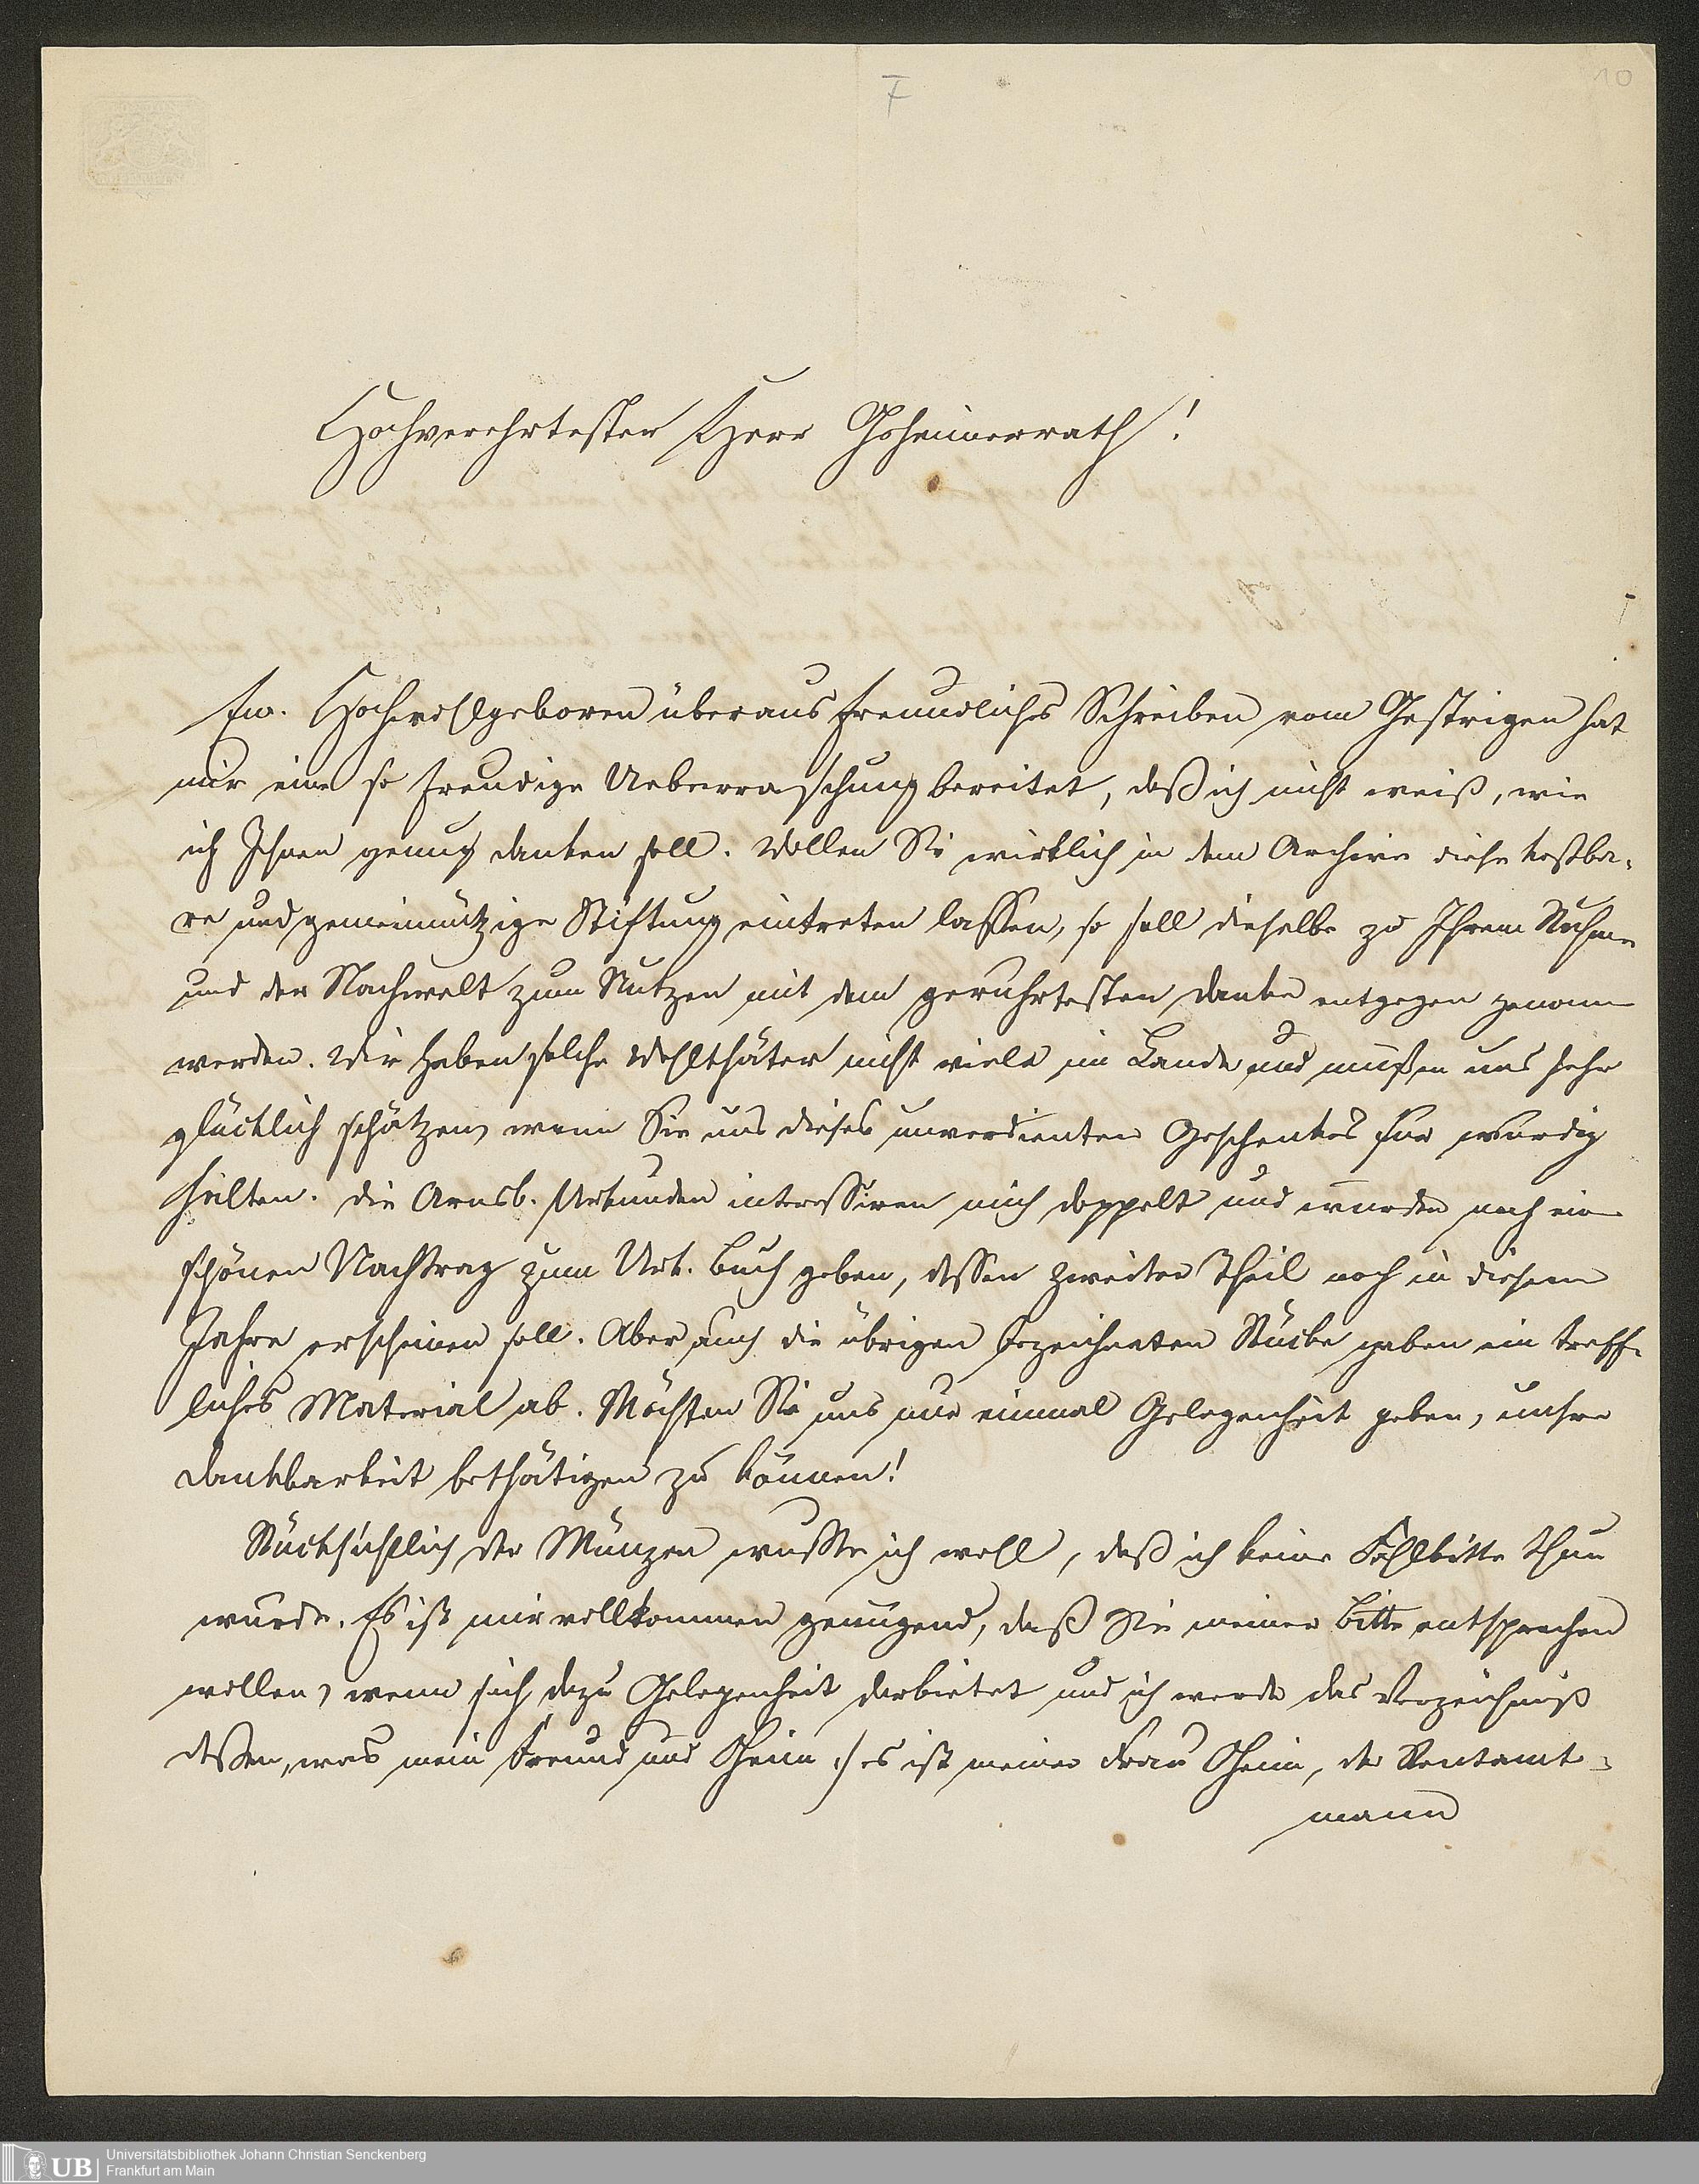 F
10
Hochverehrtester Herr Geheimerrath!
Ew. Hochwohlgeboren überaus freundliches Schreiben vom Gestrigen hat
mir eine so freudige Ueberraschung bereitet, daß ich nicht weiß, wie
ich Ihnen genug danken soll. Wollen Sie wirklich in dem Archive diese kostba-
re und gemeinnützige Stiftung eintreten lassen, so soll dieselbe zu Ihrem Ruhme
und der Nachwelt zum Nutzen mit dem gerührtesten Danke entgegen genom̅
werden. Wir haben solche Wohlthäter nicht viele im Lande und müßen uns sehr
glücklich schätzen, wenn Sie uns dieses unverdienten Geschenkes für würdig
halten. Die Arnsb. Urkunden interessiren mich doppelt und würden noch ein
schönen Nachtrag zum Urk. Buch geben, dessen zweiter Theil noch in diesem
Jahre erscheinen soll. Aber auch die übrigen bezeichneten Stücke geben ein treff-
liches Material ab. Möchten Sie uns nur einmal Gelegenheit geben, unsre
Dankbarkeit bethätigen zu können!
Rücksichtlich der Münzen wußte ich wohl, daß ich keine Fehlbitte thun
würde. Es ist mir vollkommen genügend, daß Sie meiner Bitte entsprechen
wollen, wenn sich dazu Gelegenheit darbietet und ich werde das Verzeichniß
deßen, was mein Freund und Oheim :/ es ist meiner Frau Oheim, der Rentamt-
mann
UB
Universitätsbibliothek Johann Christian Senckenberg
Frankfurt am Main